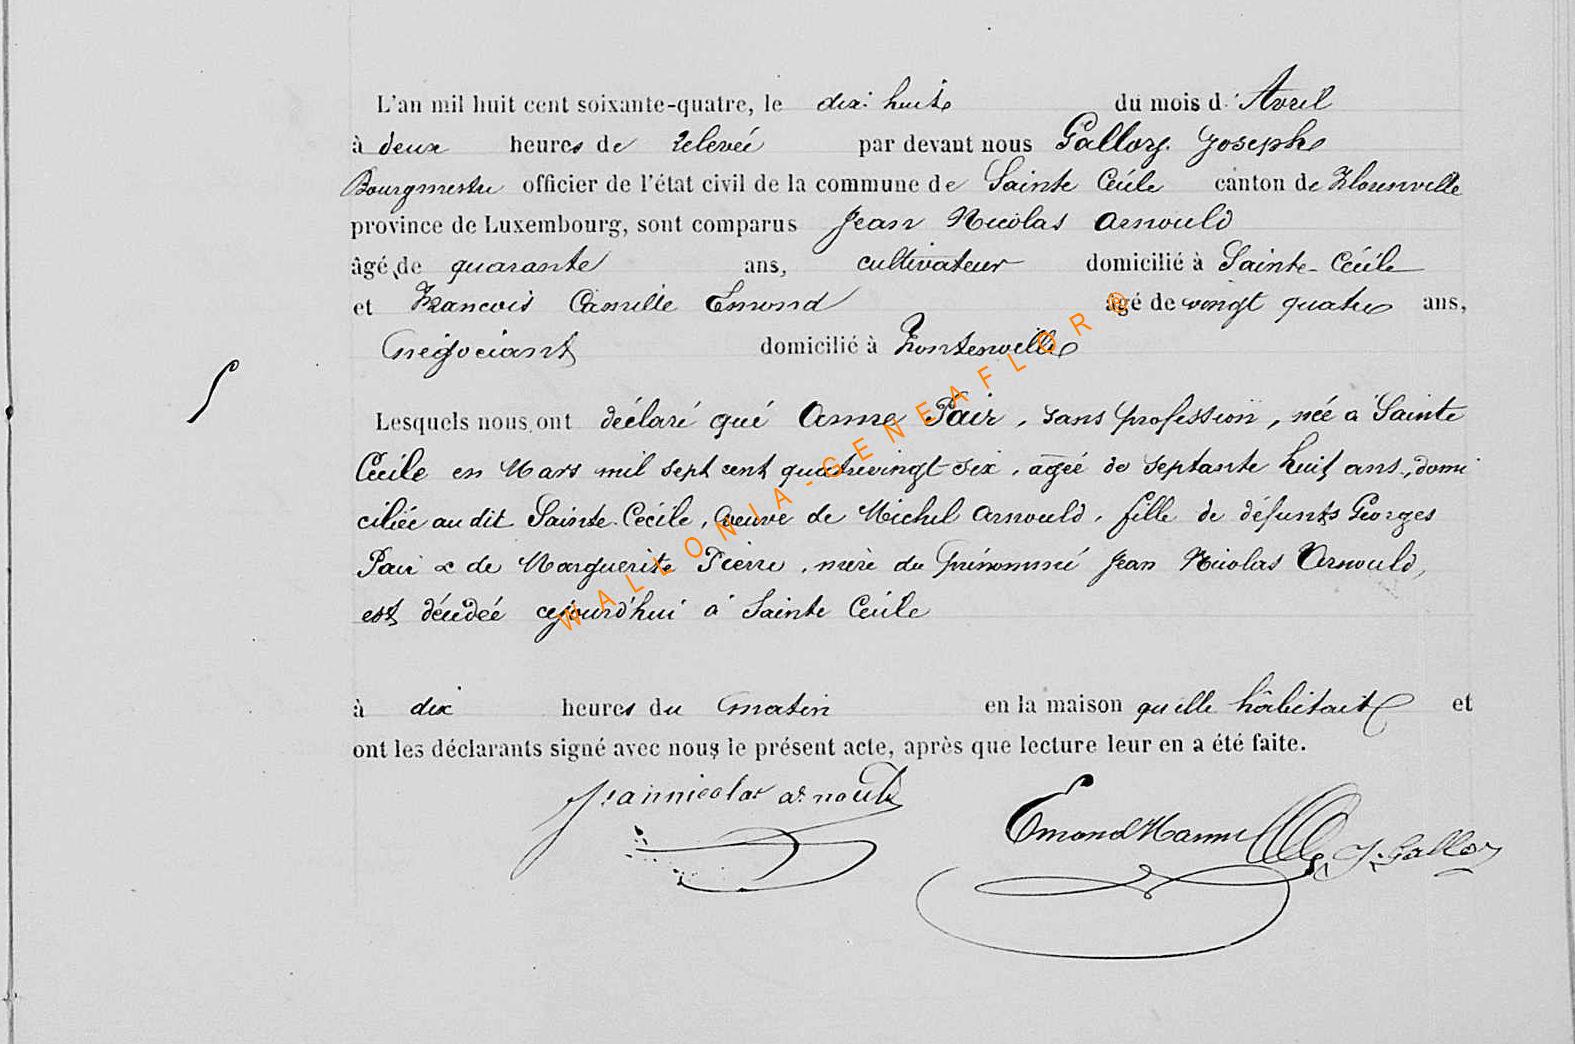 L'an mil huit cent soixante-quatre, le dix-huit du mois d'Avril
à deux heures de relevée par devant nous Galloy Joseph
Bourgmestre officier de l'état civil de la commune de Sainte Cécile canton de Florenville
province de Luxembourg, sont comparus Jean Nicolas Arnould
âgé de quarante ans, cultivateur domicilié à Sainte-Cécile
et François Camille Emond âgé de vingt quatre ans,
négociant domicilié à Fontenoille
Lesquels nous ont déclaré que Anne Pair, sans profession, née à Sainte
Cécile en Mars mil sept cent quatrevingt six, agée de septante huit ans, domi
ciliée au dit Sainte-Cécile, veuve de Michel Arnould, fille de défunts Georges
Pair & de Marguerite Pierre, mère du prénommé Jean Nicolas Arnould,
est décédée cejourd'hui à Sainte Cécile
à dix heures du matin en la maison qu'elle habitait et
ont les déclarants signé avec nous le présent acte, après que lecture leur en a été faite.
Jeannicolas arnould
Emond J. Galloy
WALLONIA-GENEAFLOR®